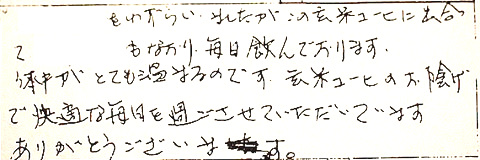 をわずらい、れたが この玄米コーヒに出合っ
て もなおり、毎日飲んでおります.
体中が とても温まるのです. 玄米コーヒのお陰げ
で快適な毎日を過ごさせていただいています
ありがとうございます。